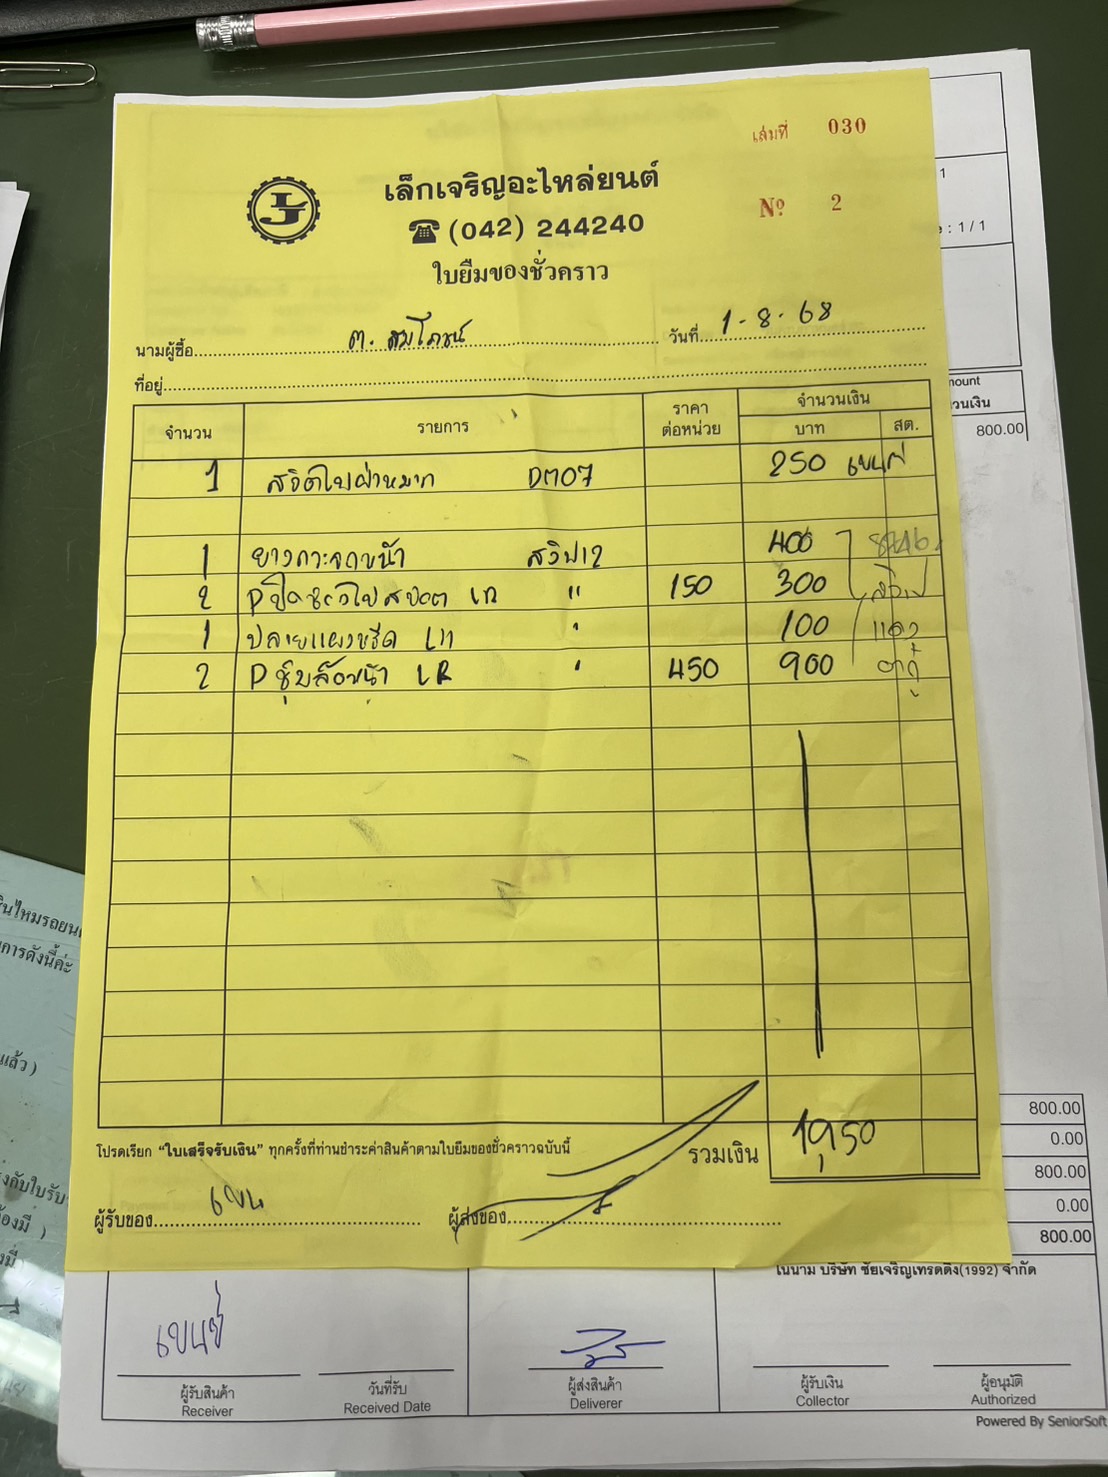 เล่มที่ 030
LJ
เล็กเจริญอะไหล่ยนต์
☎ (042) 244240
Nº 2
ใบยืมของชั่วคราว
นามผู้ซื้อ ต. สมโภชน์ วันที่ 1-8-68
ที่อยู่
จำนวน รายการ ราคาต่อหน่วย จำนวนเงิน
บาท สต.
1 สวิตใบฝ่าหมาก DM07 250
1 ยางกระจกหน้า 400
2 150 300
1 ปลายแผงหรีด LH 100
2 P ซุ้มล้อหน้า LR 450 900
โปรดเรียก “ใบเสร็จรับเงิน” ทุกครั้งที่ท่านชำระค่าสินค้าตามใบยืมของชั่วคราวฉบับนี้
รวมเงิน 1,950
ผู้รับของ ผู้ส่งของ
1
: 1 / 1
ount
วนเงิน
800.00
800.00
0.00
800.00
0.00
800.00
ในนาม บริษัท ชัยเจริญเทรดดิ้ง(1992) จำกัด
ผู้รับสินค้า วันที่รับ ผู้ส่งสินค้า ผู้รับเงิน ผู้อนุมัติ
Receiver Received Date Deliverer Collector Authorized
Powered By SeniorSoft
การดังนี้ค่ะ
แล้ว )